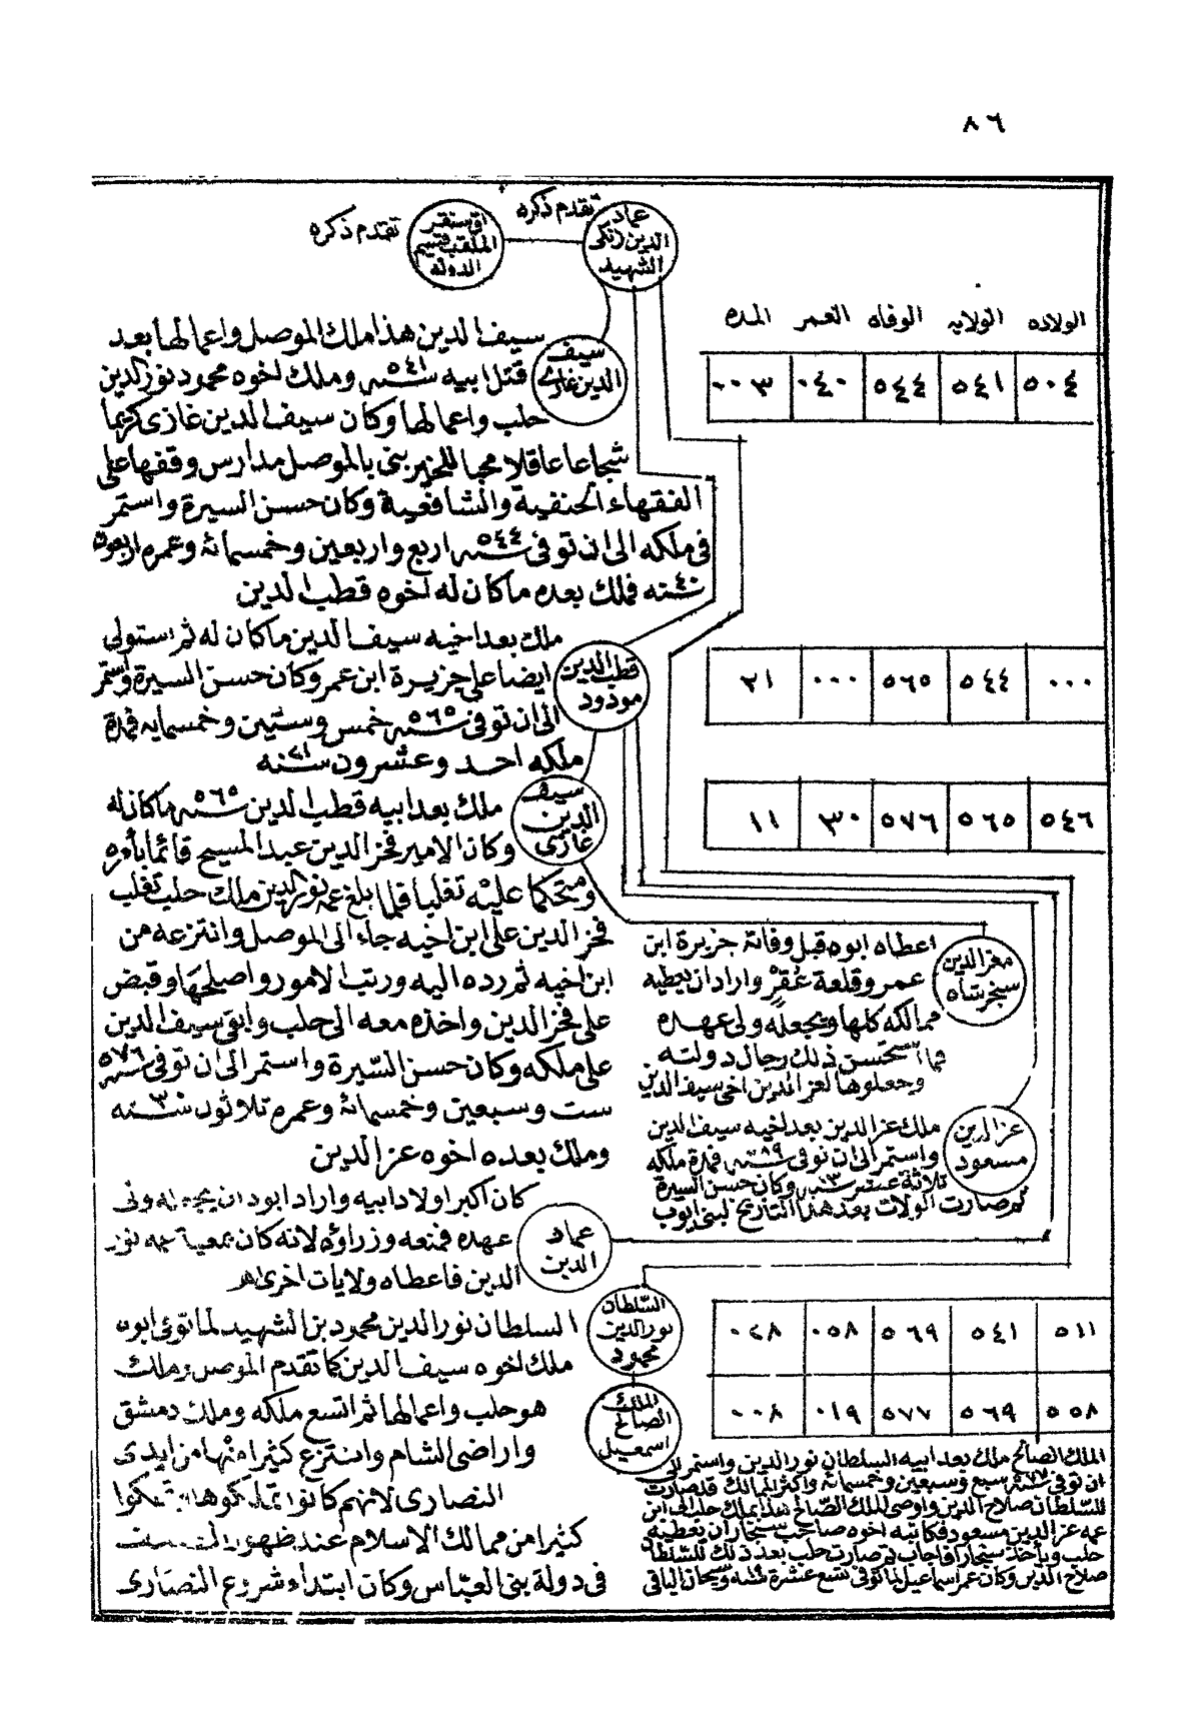 ٨٦
عماد الدين زنكى الشهيد
تقدم ذكره
اقسنقر الملقب قسيم الدولة
تقدم ذكره
الولاده الولايه الوفاه العمر المده
٥٠٤ ٥٤١ ٥٤٤ ٠٤٠ ٠٠٣
سيف الدين غازى
سيف الدين هذا ملك الموصل واعمالها بعد
قتل ابيه سنه ٥٤١ وملك اخوه محمود نور الدين
حلب واعمالها وكان سيف الدين غازى كريما
شجاعا عاقلا محبا للخير بنى بالموصل مدارس وقفها على
الفقهاء الحنفية والشافعية وكان حسن السيرة واستمر
فى ملكه الى ان توفى سنه ٥٤٤ اربع واربعين وخمسمائة وعمره اربعون
سنه ٤٠ فملك بعده ما كان له اخوه قطب الدين
قطب الدين مودود
ملك بعد اخيه سيف الدين ما كان له ثم استولى
ايضا على جزيرة ابن عمر وكان حسن السيرة واستمر
الى ان توفى سنه ٥٦٥ خمس وستين وخمسمايه فمدة
ملكه احد وعشرون سنه ٢١
٠٠٠ ٥٤٤ ٥٦٥ ٠٠٠ ٢١
سيف الدين غازى
ملك بعد ابيه قطب الدين سنه ٥٦٥ ما كان له
وكان الامير فخر الدين عبد المسيح قائما بأمره
ومتحكما عليه تغلبا فلما بلغ عمه نور الدين ملك حلب تغلب
فخر الدين على ابن اخيه جاء الى الموصل وانتزعه من
ابن اخيه ثم رده اليه ورتب الامور واصلحها وقبض
على فخر الدين واخذه معه الى حلب وابقى سيف الدين
على ملكه وكان حسن السيرة واستمر الى ان توفى سنه ٥٧٦
ست وسبعين وخمسمائة وعمره ثلاثون سنه ٣٠
وملك بعده اخوه عز الدين
٥٤٦ ٥٦٥ ٥٧٦ ٣٠ ١١
معز الدين سنجر شاه
اعطاه ابوه قبل وفاته جزيرة ابن
عمر وقلعة عقر واراد ان يعطيه
ممالكه كلها ويجعله ولى عهده
فما استحسن ذلك رجال دولته
وجعلوها لعز الدين اخى سيف الدين
عز الدين مسعود
ملك عز الدين بعد اخيه سيف الدين
واستمر الى ان توفى سنه فمدة ملكه
ثلاثة عشر سنه وكان حسن السيرة
ثم صارت الولات بعد هذا التاريخ لبنى ايوب
عماد الدين
كان اكبر اولاد ابيه واراد ابوه ان يجعله ولى
عهده فمنعه وزراؤه لانه كان بمعية عمه نور
الدين فاعطاه ولايات اخرى اهـ
السلطان نور الدين محمود
السلطان نور الدين محمود بن الشهيد لما توفى ابوه
ملك اخوه سيف الدين كما تقدم الموصل وملك
هو حلب واعمالها ثم اتسع ملكه وملك دمشق
واراضى الشام وانتزع كثيرا منها من ايدى
النصارى لانهم كانوا تملكوها
كثيرا من ممالك الاسلام عند ظهور
فى دولة بنى العباس وكان ابتداء شروع النصارى
٥١١ ٥٤١ ٥٦٩ ٠٥٨ ٠٢٨
الملك الصالح اسمعيل
٥٥٨ ٥٦٩ ٥٧٧ ٠١٩ ٠٠٨
الملك الصالح ملك بعد ابيه السلطان نور الدين واستمر الى
ان توفى سنه ٥٧٧ سبع وسبعين وخمسمائة واكثر الممالك قد صارت
للسلطان صلاح الدين واوصى الملك الصالح هذا بملك حلب الى ابن
عمه عز الدين مسعود فكاتبه اخوه صاحب سنجار ان يعطيه
حلب ويأخذ سنجار فاجاب ثم صارت حلب بعد ذلك للسلطان
صلاح الدين وكان عمر اسماعيل لما توفى تسع عشرة سنه وسبحان الباقى